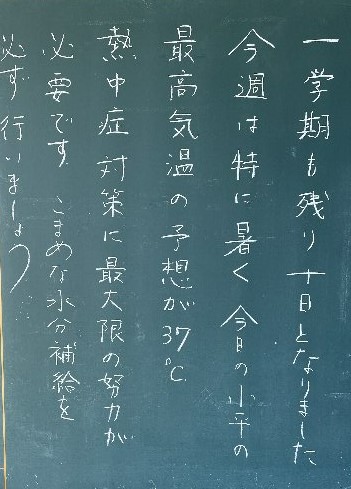 一学期も残り十日となりました
今週は特に暑く今日の小平の
最高気温の予想が37℃
熱中症対策に最大限の努力が
必要です こまめな水分補給を
必ず行いましょう